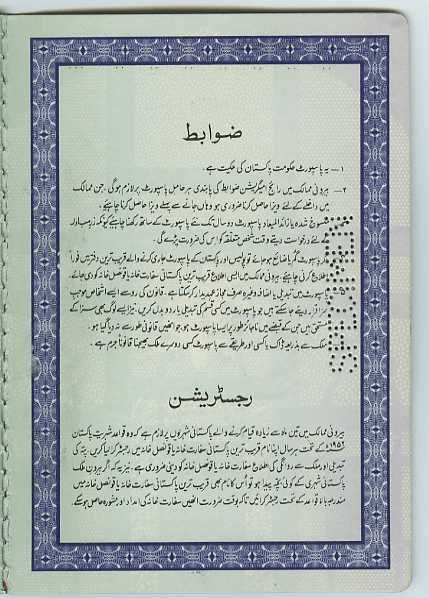 ضوابط
۱ــ یہ پاسپورٹ حکومت پاکستان کی ملکیت ہے۔
۲ــ بیرونی ممالک میں رائج امیگریشن ضوابط کی پابندی ہر حامل پاسپورٹ پر لازم ہوگی۔ جن ممالک
میں داخلے کے لئے ویزا حاصل کرنا ضروری ہو وہاں جانے سے پہلے ویزا حاصل کرنا چاہیئے۔
منسوخ شدہ یا زائد المیعاد پاسپورٹ دو سال تک نئے پاسپورٹ کے ساتھ رکھنا چاہیئے کیونکہ زرمبادلہ
کے لئے درخواست دیتے وقت شخص متعلقہ کو اس کی ضرورت پڑے گی۔
اگر پاسپورٹ گم یا ضائع ہو جائے تو پولیس اور پاکستان کے پاسپورٹ جاری کرنے والے قریب ترین دفتر میں فوراً
اطلاع کرنی چاہیئے۔ بیرونی ممالک میں ایسی اطلاع قریب ترین پاکستانی سفارت خانہ یا قونصل خانہ کو دی جائے۔
پاسپورٹ میں تبدیلی یا اضافہ وغیرہ صرف مجاز عہدیدار کر سکتا ہے۔ قانون کی رو سے ایسے اشخاص موجب
سزا قرار دیئے جا سکتے ہیں جو پاسپورٹ میں کسی قسم کی تبدیلی یا ردوبدل کریں۔ نیز ایسے لوگ بھی سزا کے
مستحق ہیں جن کے قبضے میں ناجائز طور پر ایسا پاسپورٹ ہو، جو انھیں قانونی طور سے نہ دیا گیا ہو۔
ملک سے بذریعہ ڈاک یا کسی اور طریقے سے پاسپورٹ کسی دوسرے ملک بھیجنا قانوناً جرم ہے۔
رجسٹریشن
بیرونی ممالک میں تین ماہ سے زیادہ قیام کرنے والے پاکستانی شہریوں پر لازم ہے کہ وہ قواعد شہریت پاکستان
۱۹۵۲ء کے تحت ہر سال اپنا نام قریب ترین پاکستانی سفارت خانہ یا قونصل خانہ میں رجسٹر کرالیا کریں۔ پتہ کی
تبدیلی اور ملک سے روانگی کی اطلاع سفارت خانہ یا قونصل خانہ کو دینی ضروری ہے۔ نیز یہ کہ اگر بیرون ملک
پاکستانی شہری کے کوئی بچہ پیدا ہو تو اُس کا نام بھی قریب ترین پاکستانی سفارت خانہ یا قونصل خانہ میں
مندرجہ بالا قواعد کے تحت رجسٹر کرائیں تاکہ بوقت ضرورت انھیں سفارت خانہ کی امداد اور مشورہ حاصل ہو سکے۔